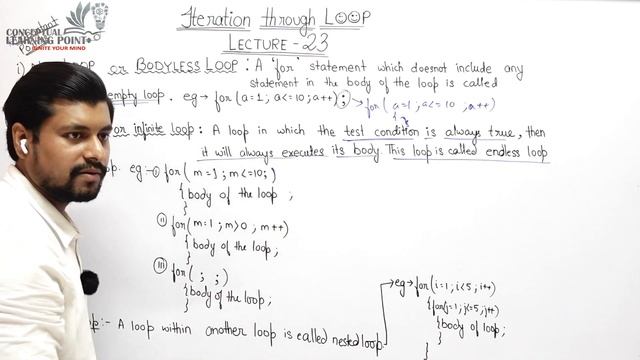 CONCEPTUAL
LEARNING POINT
IGNITE YOUR MIND
Iteration through LOOP
LECTURE - 23
or BODYLESS LOOP : A 'for' statement which doesnot include any
statement in the body of the loop is called
empty loop. eg → for (a=1; a<=10; a++) ; → for ( a=1 ; a<= 10 ; a++)
{ }
or infinite loop : A loop in which the test condition is always true, then
it will always executes its body. This loop is called endless loop
eg :- (i) for ( m=1 ; m<=10; )
{ body of the loop ;
}
(ii) for ( m=1 ; m>0 ; m++ )
{ body of the loop ;
}
(iii) for ( ; ; )
{ body of the loop ;
}
:- A loop within another loop is called nested loop
→ eg → for (i=1; i<5; i++)
{ for(j=1; j<=5; j++)
{ body of loop;
}
}